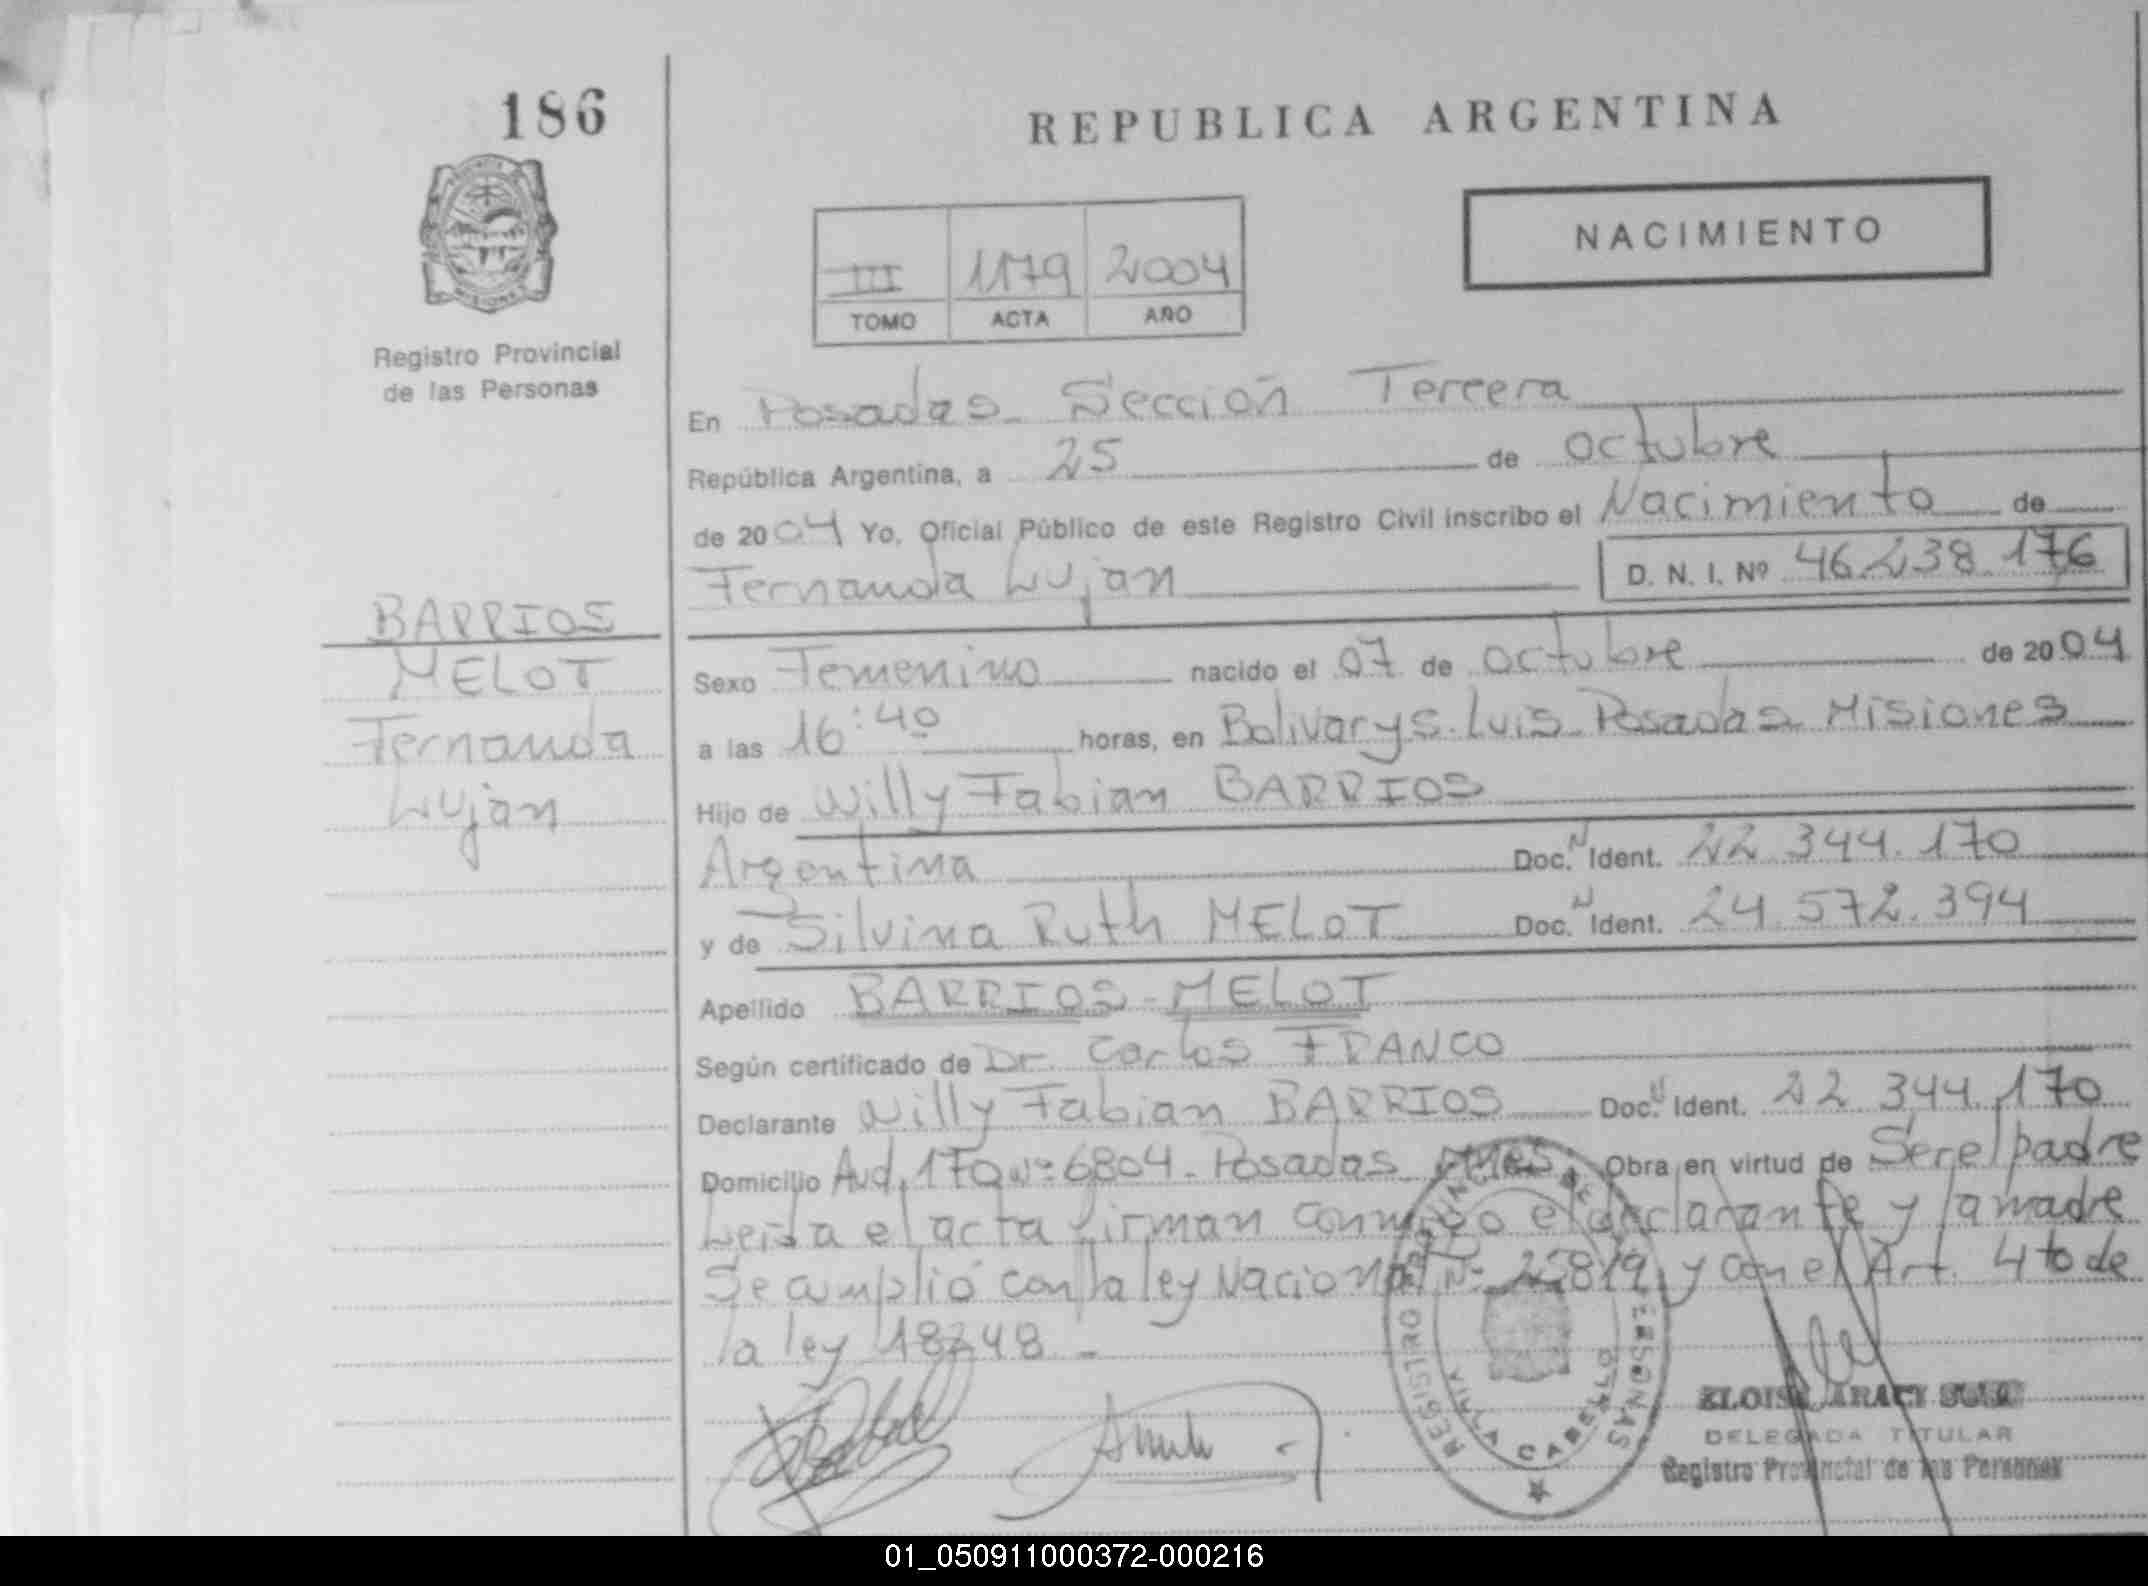 186
REPUBLICA ARGENTINA
NACIMIENTO
III 1179 2004
TOMO ACTA AÑO
MISIONES
Registro Provincial
de las Personas
En Posadas Sección Tercera
República Argentina, a 25 de octubre
de 2004 Yo, Oficial Público de este Registro Civil inscribo el Nacimiento de
Fernanda Lujan D. N. I. Nº 46.238.176
BARRIOS
MELOT
Fernanda
Lujan
Sexo Femenino nacido el 07 de octubre de 2004
a las 16:40 horas, en Bolivar y S. Luis Posadas Misiones
Hijo de Willy Fabian BARRIOS
Argentina Doc. N Ident. 22.344.170
y de Silvina Ruth MELOT Doc. N Ident. 24.572.394
Apellido BARRIOS - MELOT
Según certificado de Dr. Carlos FRANCO
Declarante Willy Fabian BARRIOS Doc. N Ident. 22.344.170
Domicilio Avd. 170 Nº 6804 - Posadas Mnes. Obra en virtud de Ser el padre
Leida el acta firman conmigo el declarante y la madre
Se cumplió con la ley Nacional Nº 25819 y con el Art. 4to de
la ley 18248 -
REGISTRO PROVINCIAL DE LAS PERSONAS
VILLA CABELLO
ELOISA ARACI
DELEGADA TITULAR
Registro Provincial de las Personas
01_050911000372-000216